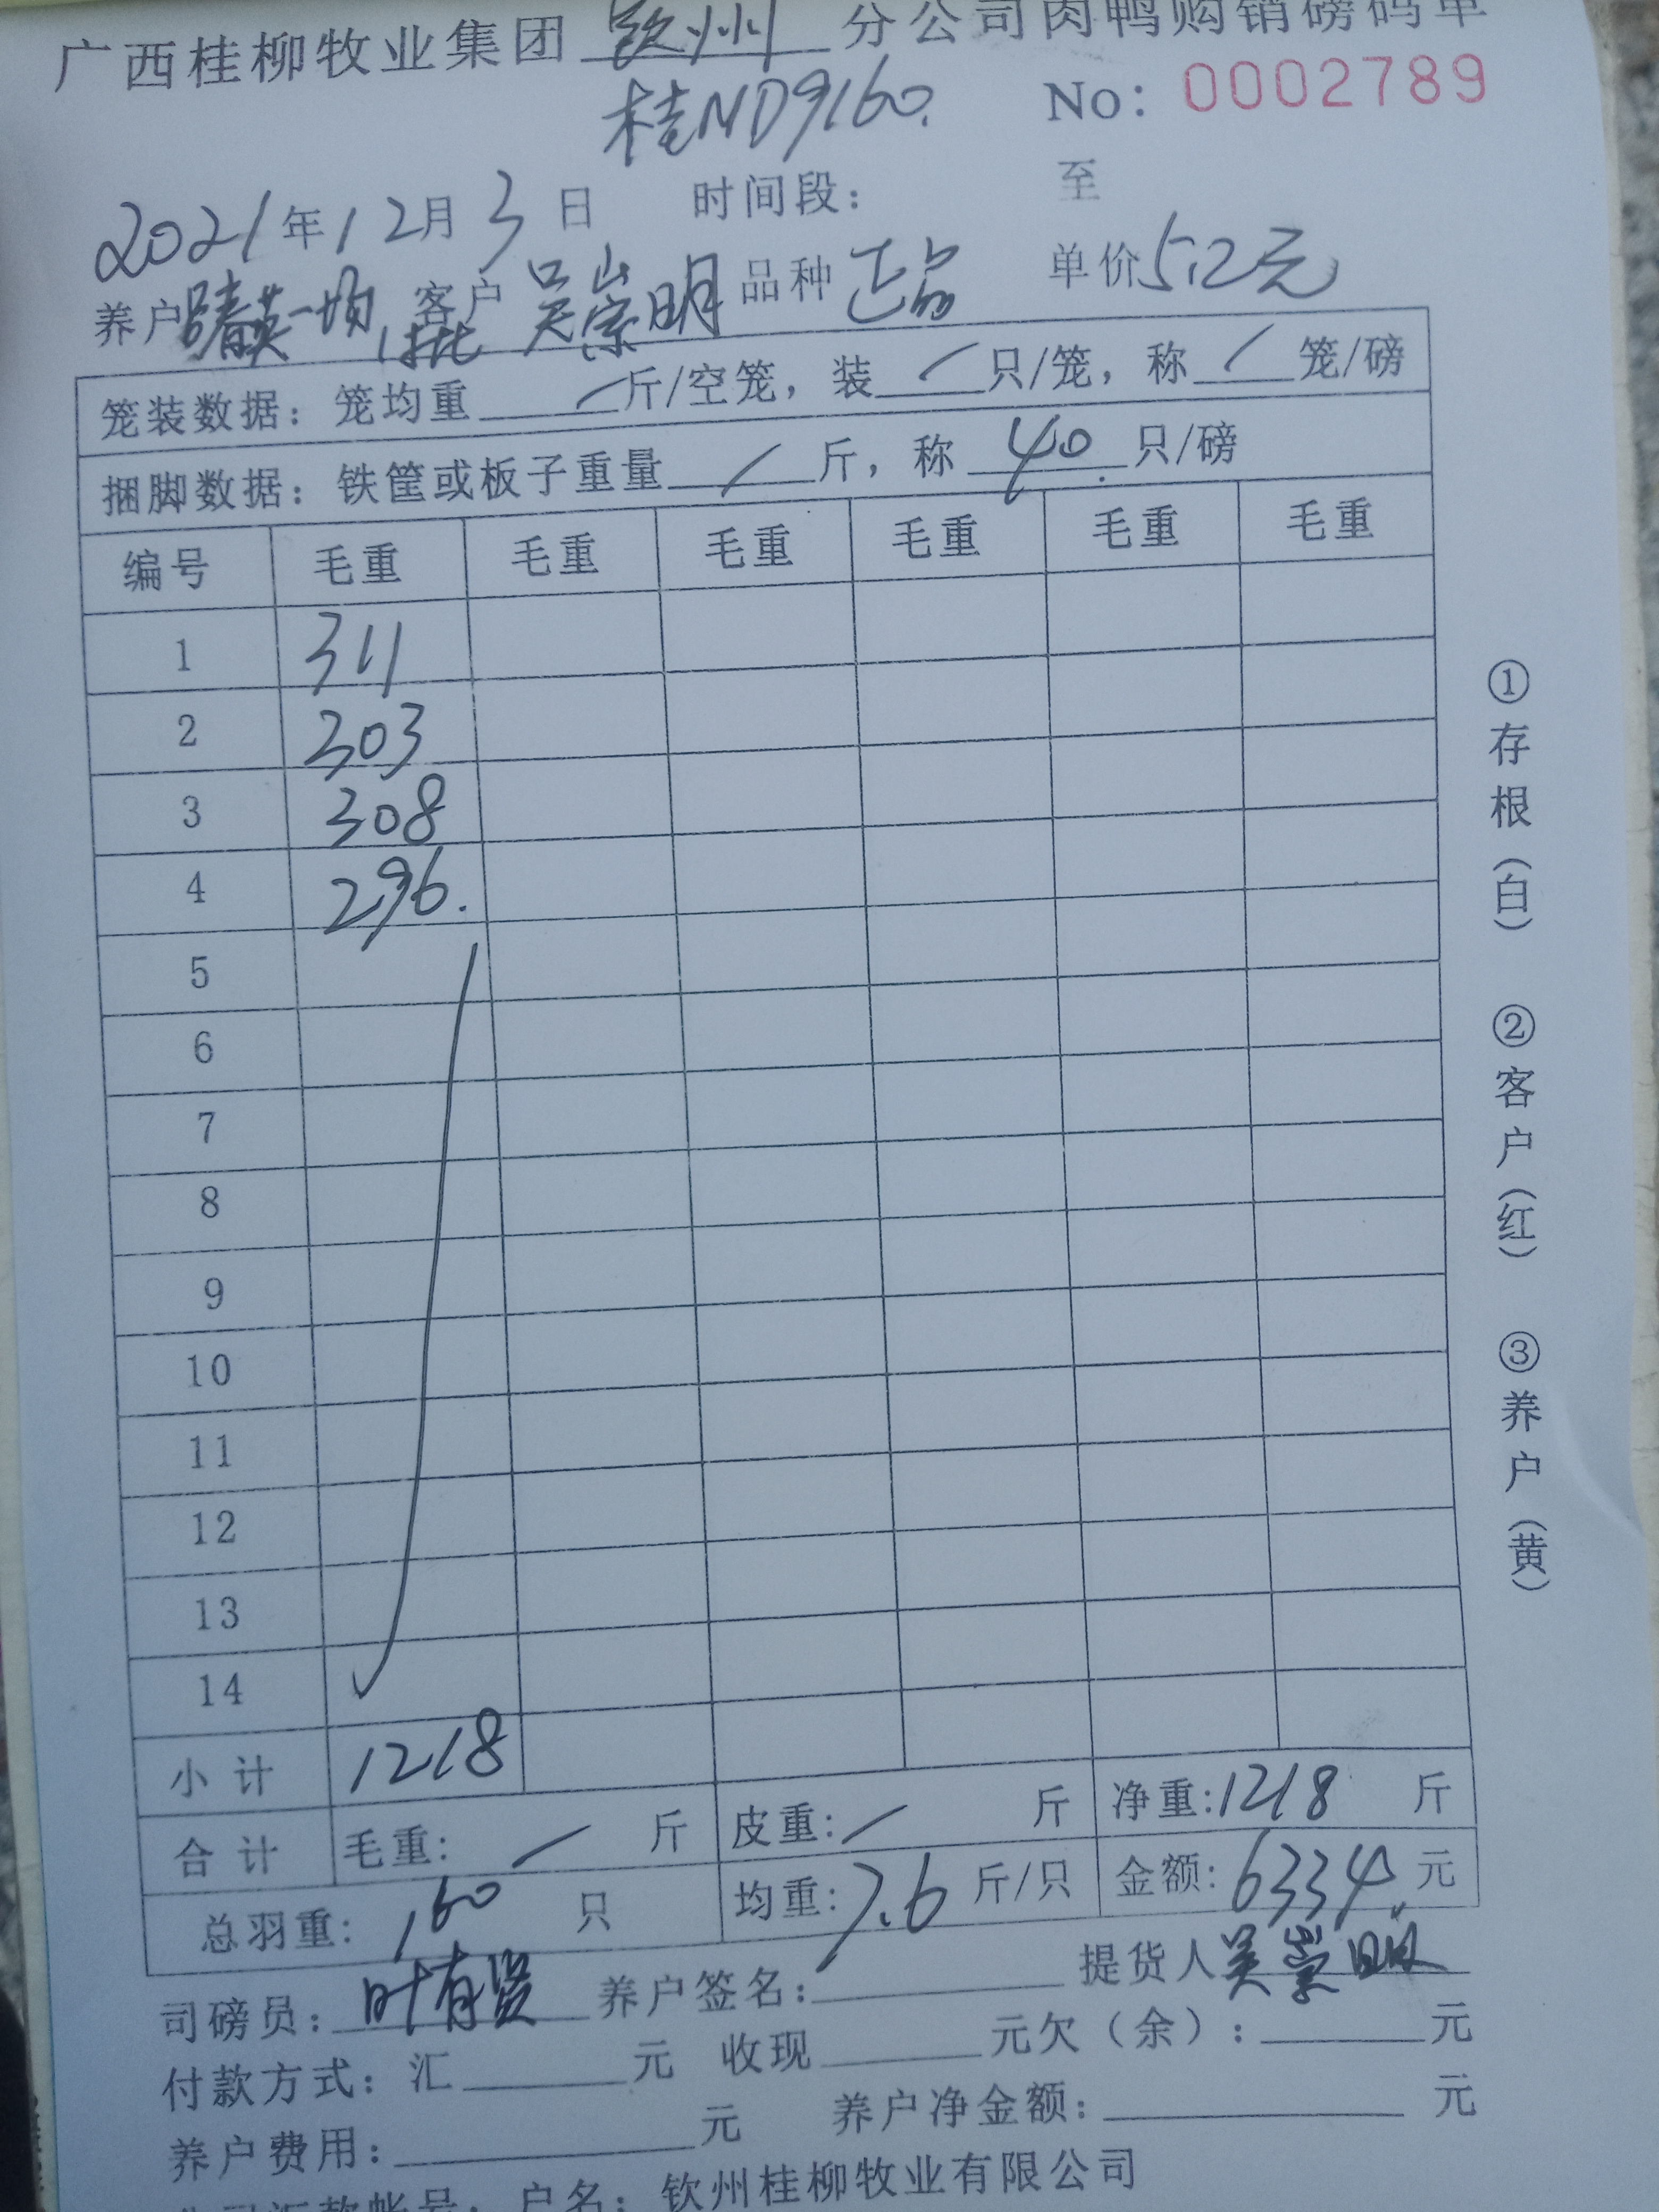 广西桂柳牧业集团 钦州 分公司肉鸭购销磅码单
桂ND9160. No: 0002789
2021年12月3日 时间段: 至
养户 客户 吴崇明 品种 正品 单价 5.2元
笼装数据:笼均重 / 斤/空笼,装 / 只/笼,称 / 笼/磅
捆脚数据:铁筐或板子重量 / 斤,称 40. 只/磅
编号 毛重 毛重 毛重 毛重 毛重 毛重
1 311
2 303
3 308
4 296.
5
6
7
8
9
10
11
12
13
14
小计 1218
合计 毛重: / 斤 皮重: / 斤 净重:1218 斤
总羽重: 160 只 均重: 7.6 斤/只 金额: 6334 元
司磅员: 叶有贤 养户签名: 提货人 吴崇明
付款方式:汇 元 收现 元欠(余): 元
养户费用: 元 养户净金额: 元
户名:钦州桂柳牧业有限公司
①存根(白) ②客户(红) ③养户(黄)